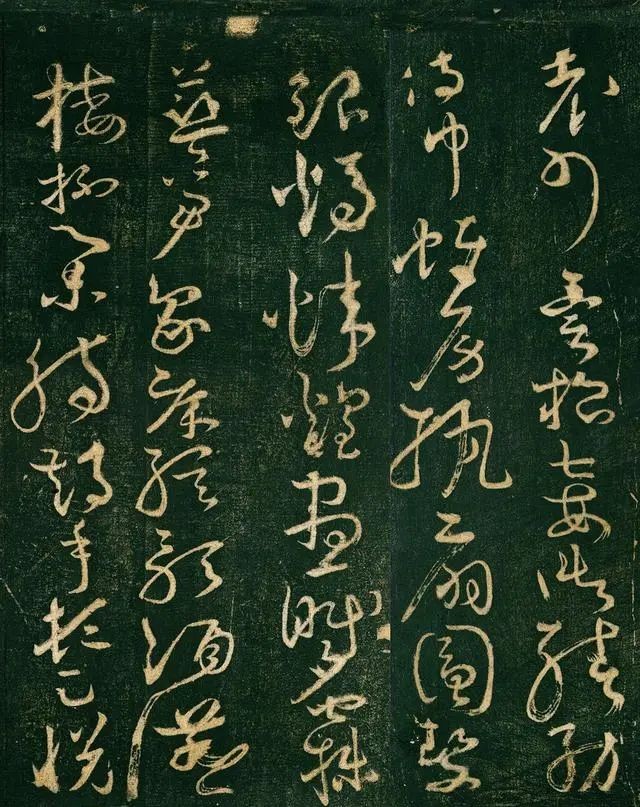 老少異糧妾御績紡
侍巾帷房紈扇圓絜
銀燭煒煌晝眠夕寐
藍笋象床絃歌酒讌
接杯舉觴矯手頓足悅